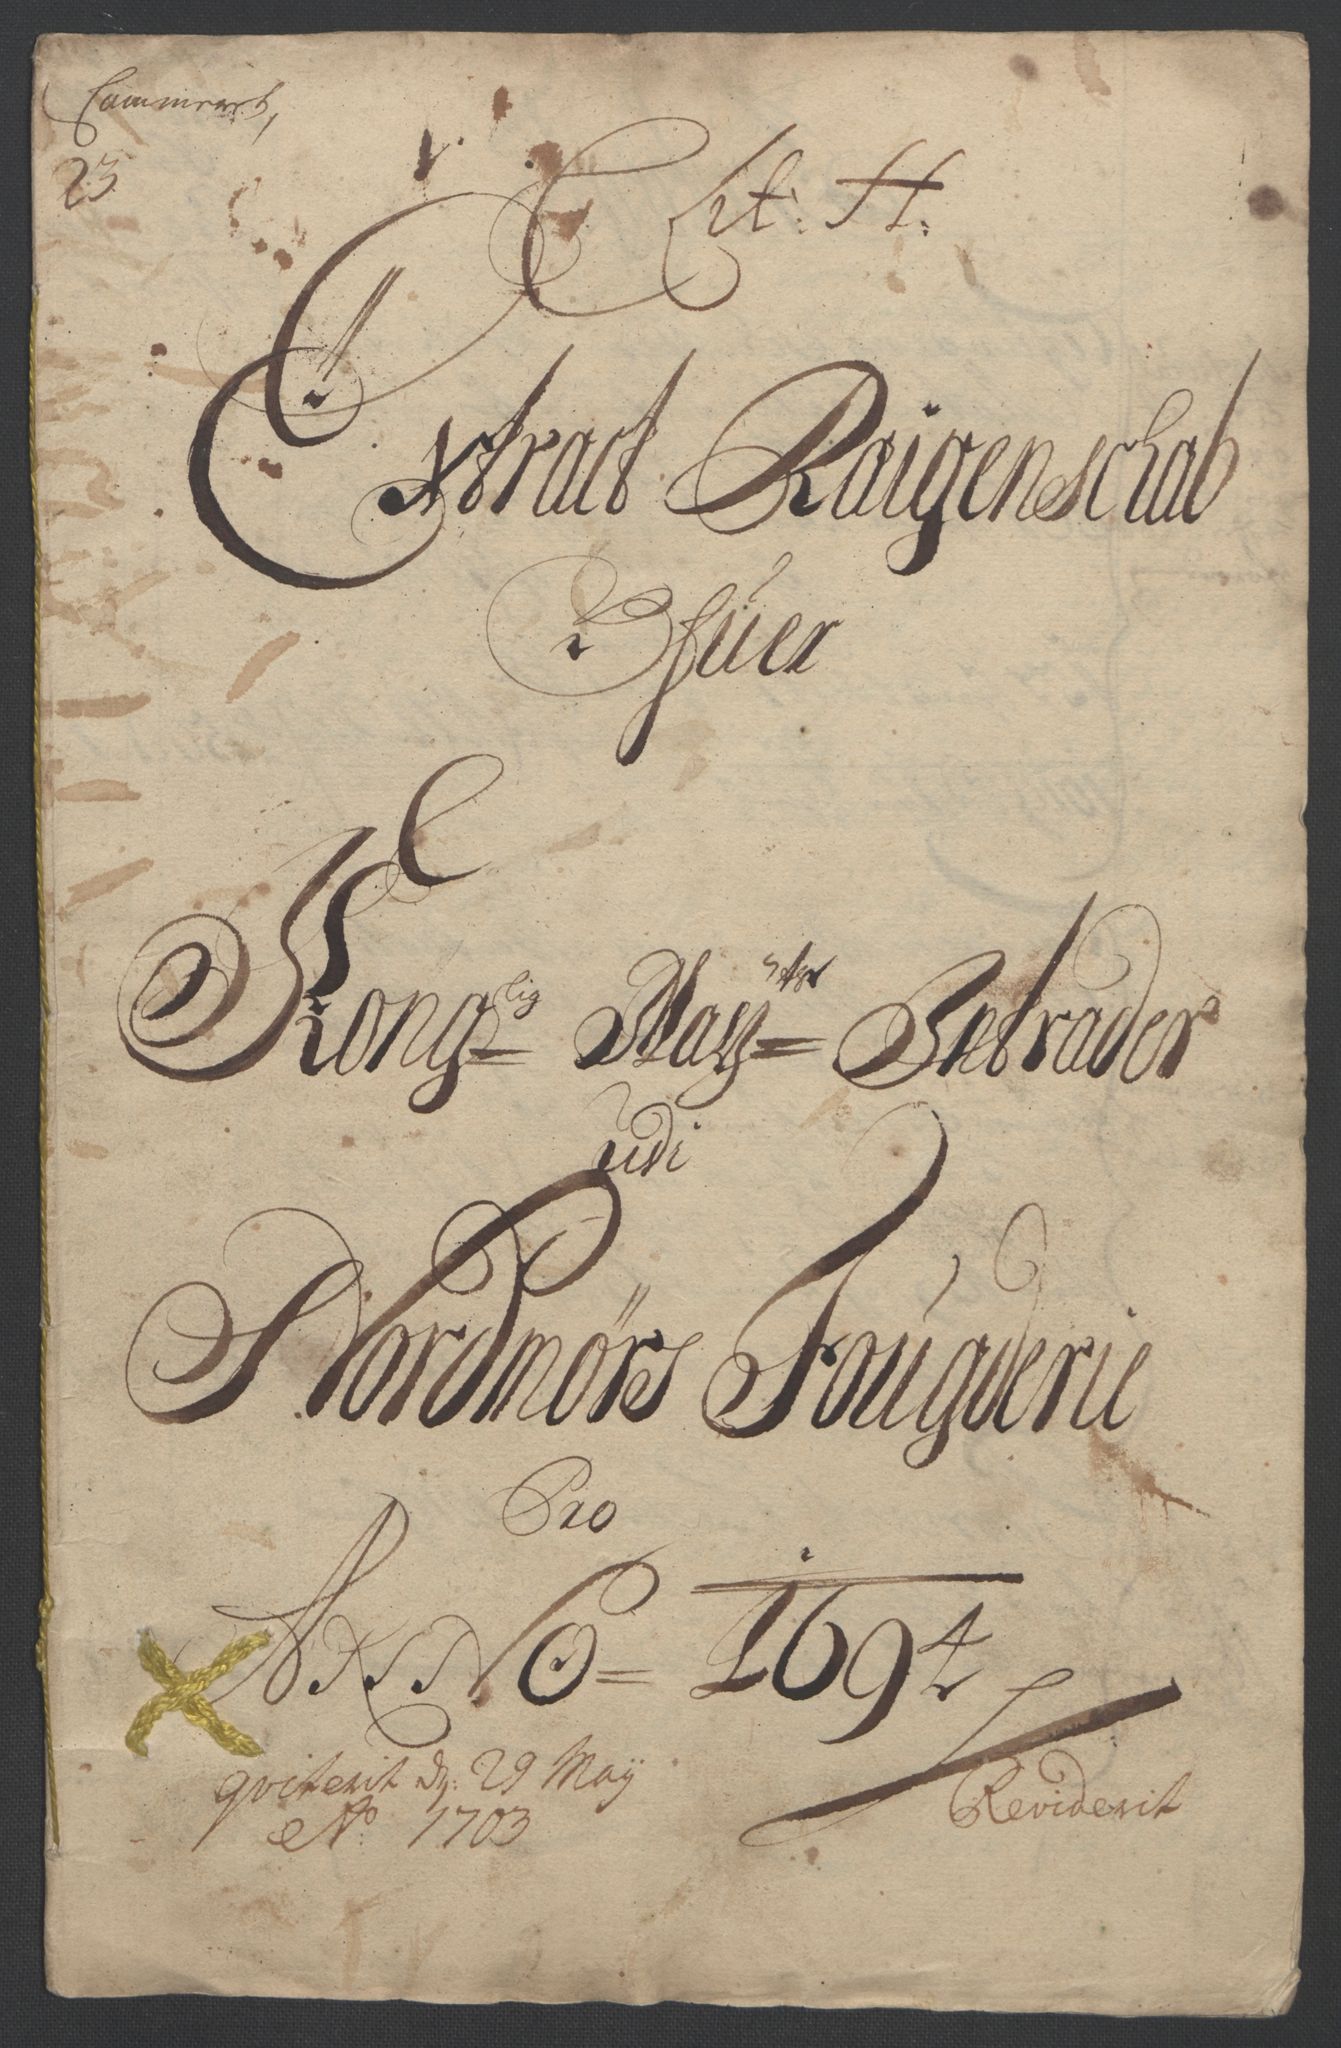 Cammeret,
23
Lit: H:
Extract Raigenschab
Ofuer
Konglig Maystzr Intrader
udi
Nordmørs Fougderie
Pro
ANNO 1694
qviterit dn: 29 Maÿ
Ao 1703
Reviderit